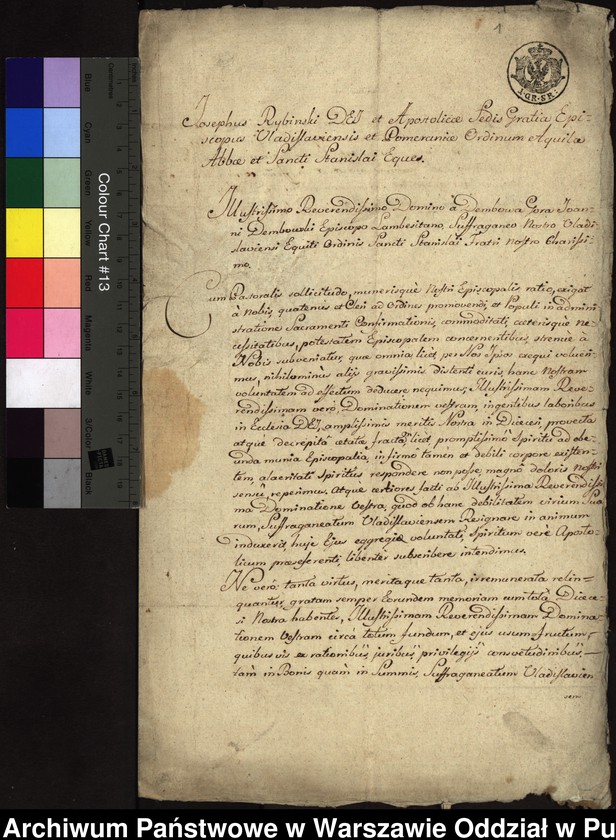 1
4.GR.SR.
Josephus Rybinski DEI et Apostolicæ Sedis Gratia Epi-
scopus Vladislaviensis et Pomeraniæ Ordinum Aquilæ
Albæ et Sancti Stanislai Eques.
Illustrissimo Reverendissimo Domino à Dembowa Gora Joan-
ni Dembowski Episcopo Lambesitano, Suffraganeo Nostro Vladi-
slaviensi Equiti Ordinis Sancti Stanislai Fratri Nostro Charissi-
mo.
Cum Pastoralis sollicitudo, munerisque Nostri Episcopalis ratio, exigat
à Nobis, quatenus et Cleri ad Ordines promovendi, et Populi in admini-
stratione Sacramenti Confirmationis, commoditati, cæterisque ne-
cessitatibus, potestatem Episcopalem concernentibus, strenue à
Nobis subveniatur, quæ omnia licet per Nos Ipsos exequi volueri-
mus, nihilominus alijs gravissimis distenti curis, hanc Nostram
voluntatem ad effectum deducere nequimus, Illustrissimam Reve-
rendissimam verò, Dominationem vestram, ingentibus laboribus
in Ecclesia DEI, amplissimis meritis Nostra in Diæcesi, provecta
atque decrepita ætate fractam, licet promptissimo Spiritu ad obe-
unda munia Episcopalia, in firmo tamen et debili corpore existen-
tem, alacritati Spiritus respondere non posse, magno doloris Nostri
sensu, reperimus, Atque certiores facti ab Illustrissima Reverendissi-
ma Dominatione Vestra, quod ob hanc debilitatem virium Sua-
rum, Suffraganeatum Vladislaviensem Resignare in animum
induxerit, huic Ejus eggregiæ voluntati, Spiritum verè Aposto-
licum præseferenti, libenter subscribere intendimus.
Ne verò tanta virtus, meritaque tanta, irremunerata relin-
quantur, gratam semper Eorundem memoriam cum tota Diæce-
si Nostra habentes, Illustrissimam Reverendissimam Domina-
tionem Vestram circà totum fundum, et ejus usumfructum,
quibusvis ex rationibus, juribus, privilegijs consvetudinibus,
tàm in Bonis quam in Summis, Suffraganeatum Vladislavien
sem
Colour Chart #13
Blue
Cyan
Green
Yellow
Red
Magenta
White
3/Color
Black
Centimetres
Archiwum Państwowe w Warszawie Oddział w Pu